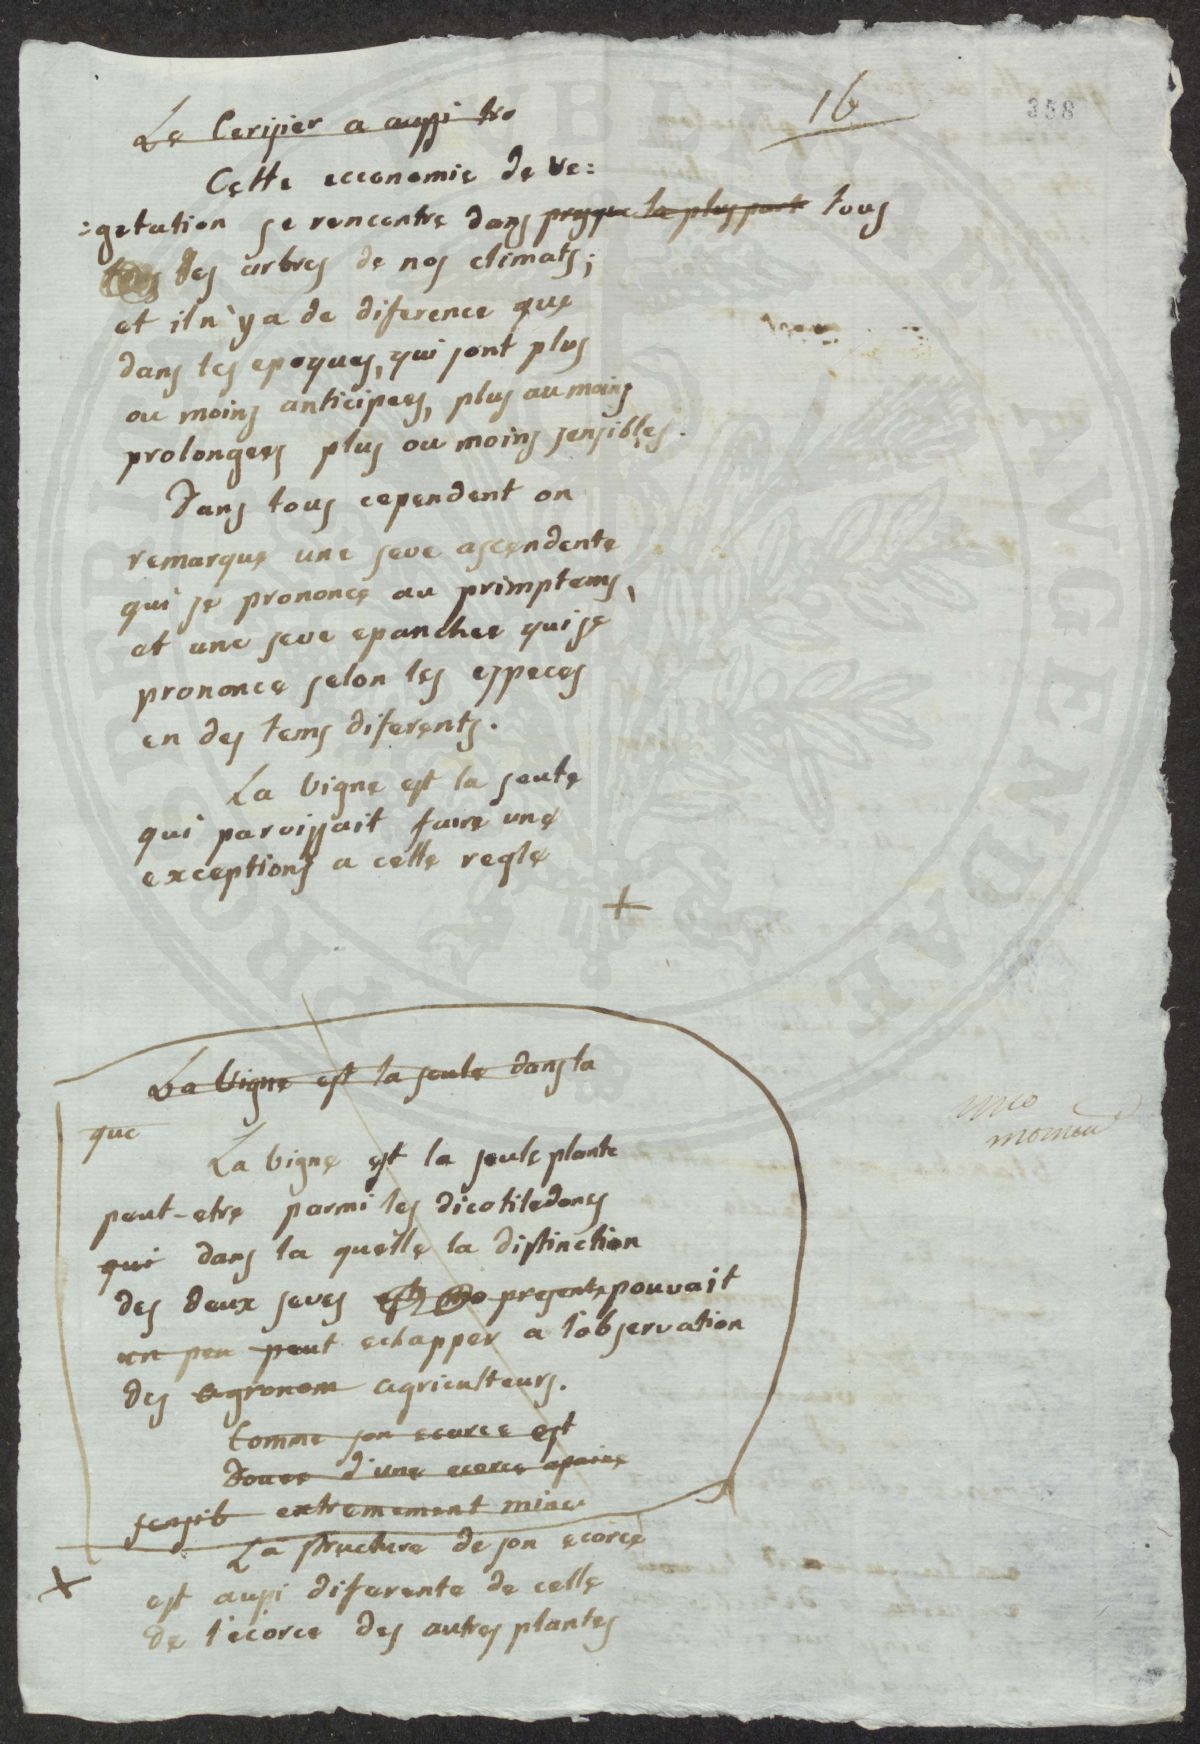 16
358
Le Cerisier a aussi tro
Cette economie de ve=
=getation se rencontre dans presque la plus part tous
les des arbres de nos climats;
et il n'y a de diference que
dans les epoques, qui sont plus
ou moins anticipees, plus au moins
prolongees plus ou moins sensibles.
Dans tous cependent on
remarque une seve ascendente
qui se prononce au primptems,
et une seve epanchee qui se
prononce selon les especes
en des tems diferents.
La vigne est la seule
qui paroissait faire une
exceptions a cette regle
+
La vigne est la seule dans la
que
La vigne est la seule plante
peut-etre parmi les dicotiledones
qui dans la quelle la distinction
des deux seves presente pouvait
un peu peut echapper a l'observation
des agronom agriculteurs.
Comme son ecorce est
Douee d'une ecorce apaine
sensib extremement mince
La structure de son ecorce
x est aussi diferente de celle
de l'ecorce des autres plantes